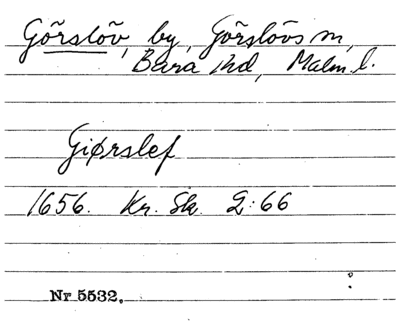 Görslöv, by, Görslövs sn,
Bara hd, Malm. l.
Giørslef
1656. Kr. Sk. 2:66
Nr 5532.